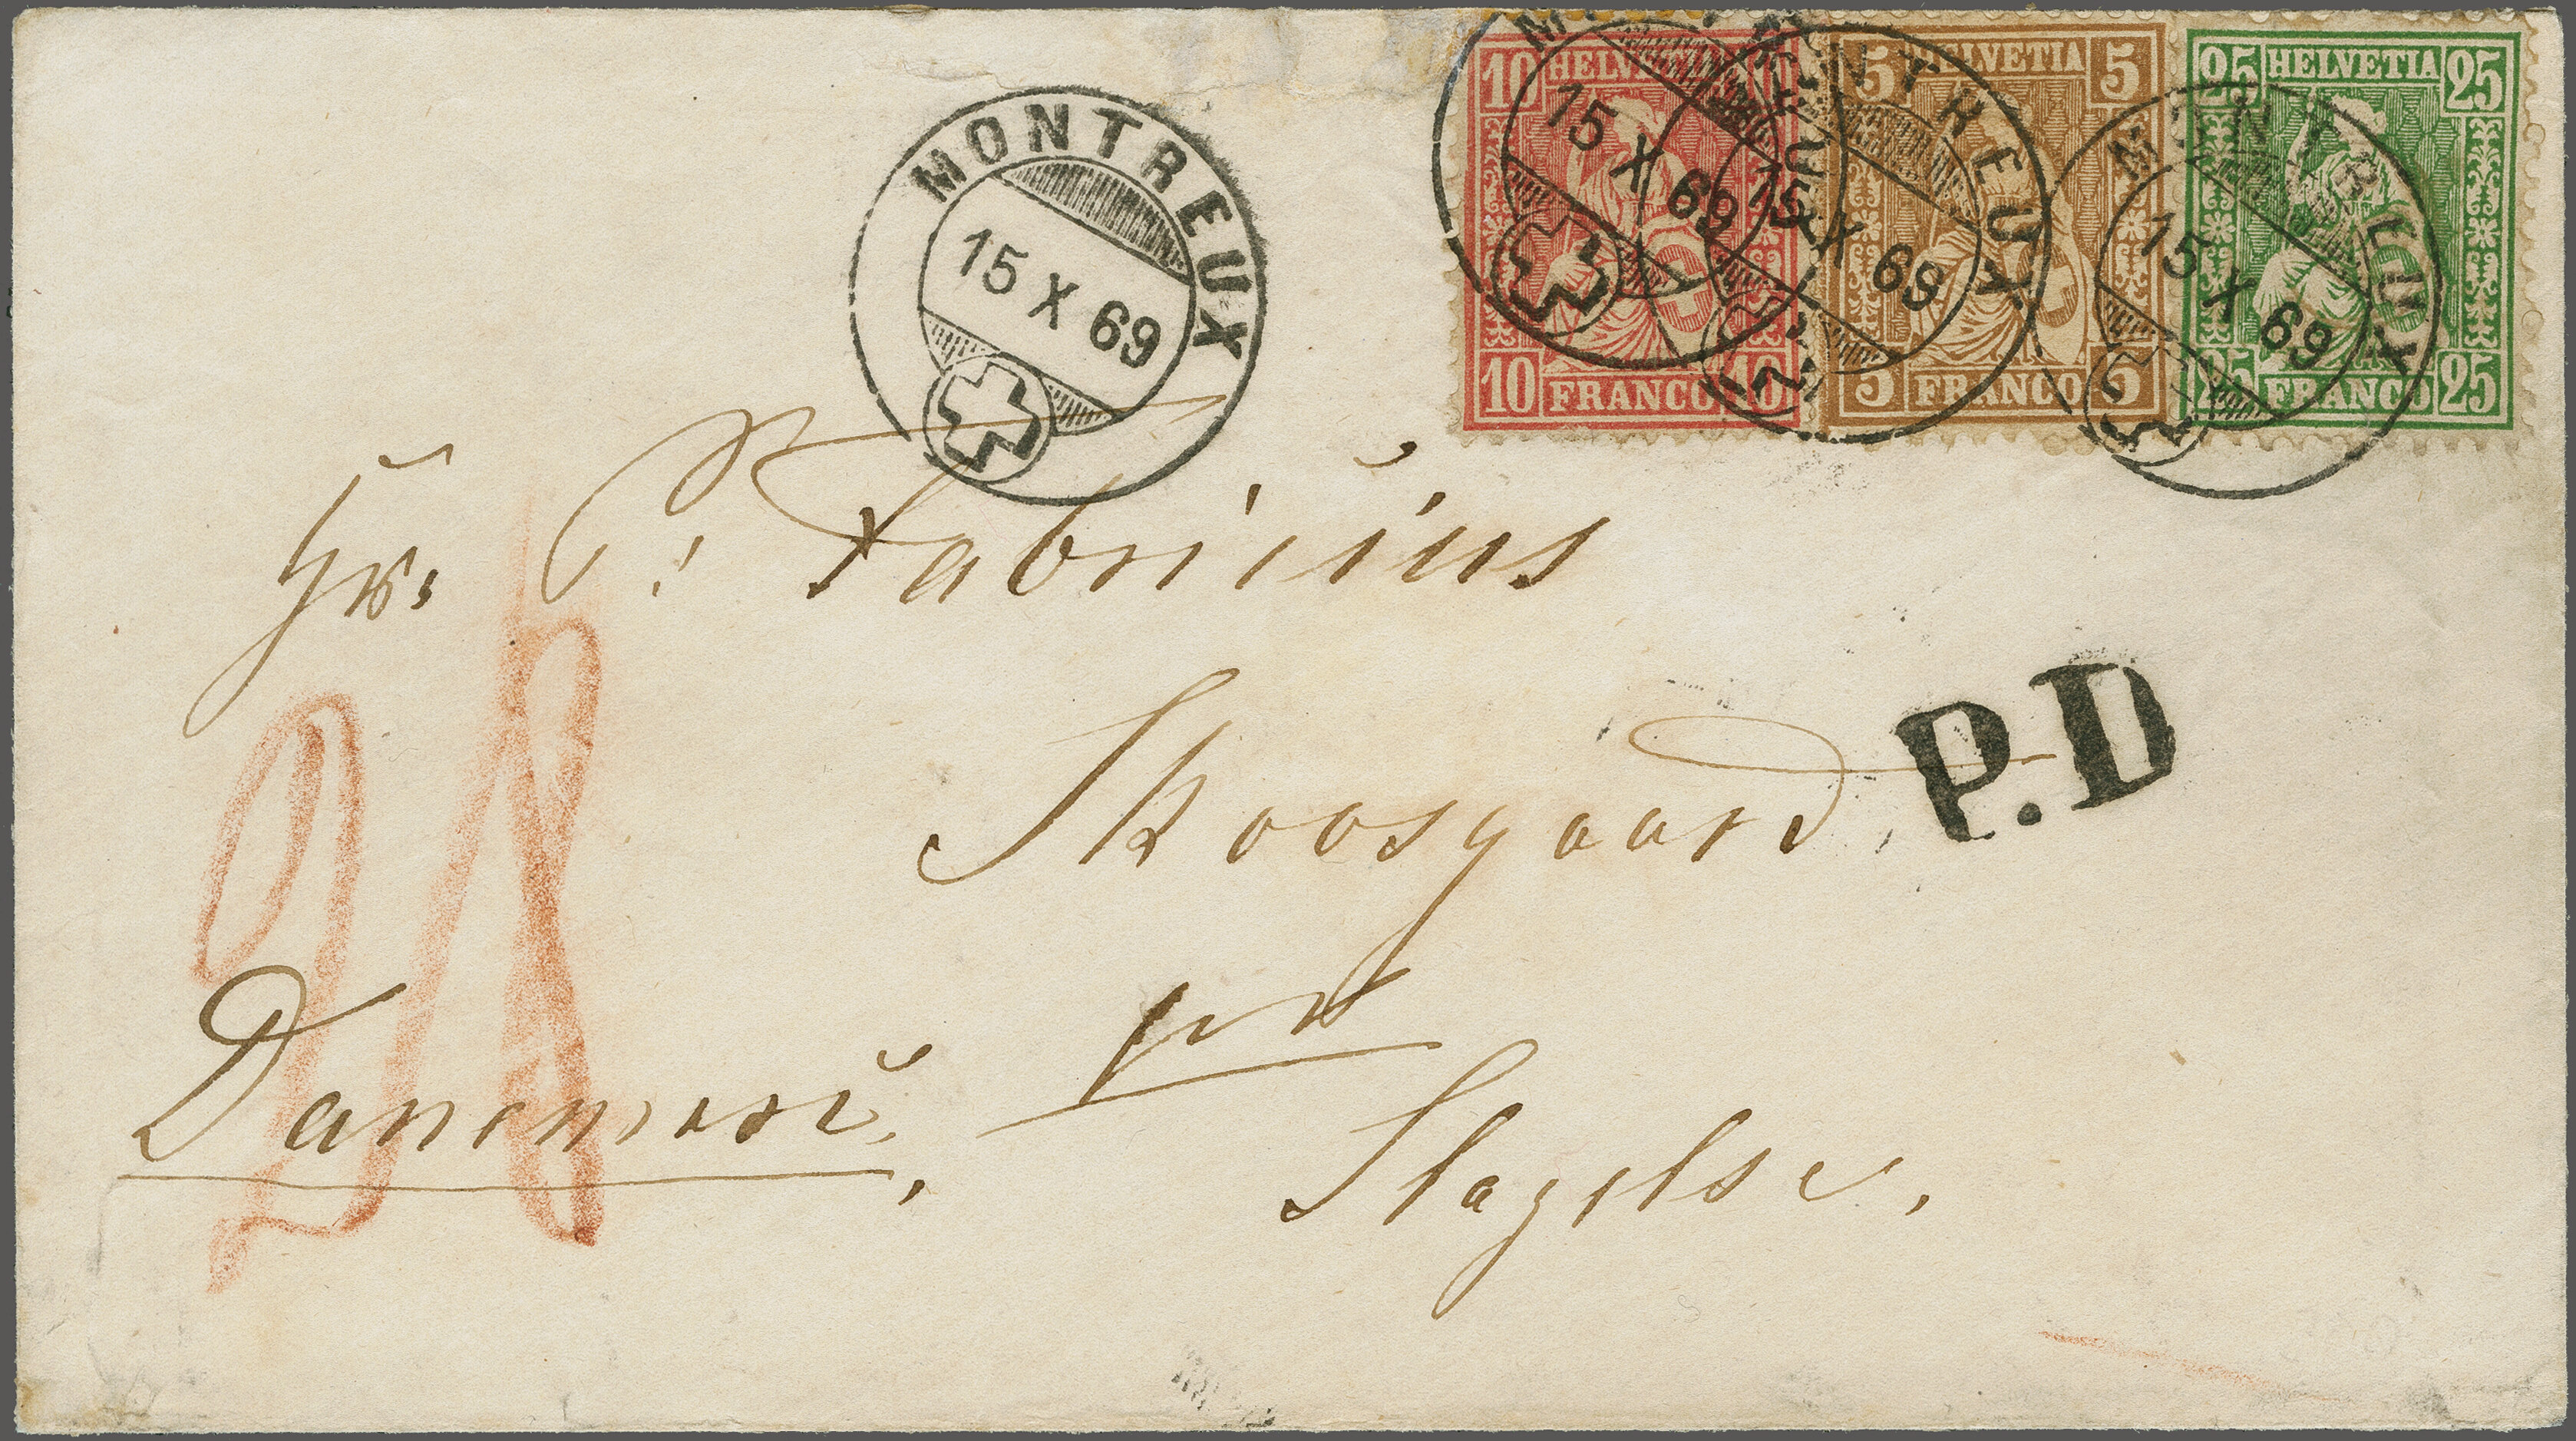 10 HELVETIA 10
10 FRANCO 10
5 HELVETIA 5
5 FRANCO 5
25 HELVETIA 25
25 FRANCO 25
MONTREUX
15 X 69
MONTREUX
15 X 69
MONTREUX
15 X 69
MONTREUX
15 X 69
Hr. P. Fabricius
Skovsgaard,
P.D
pr
Danemark,
Slagelse.